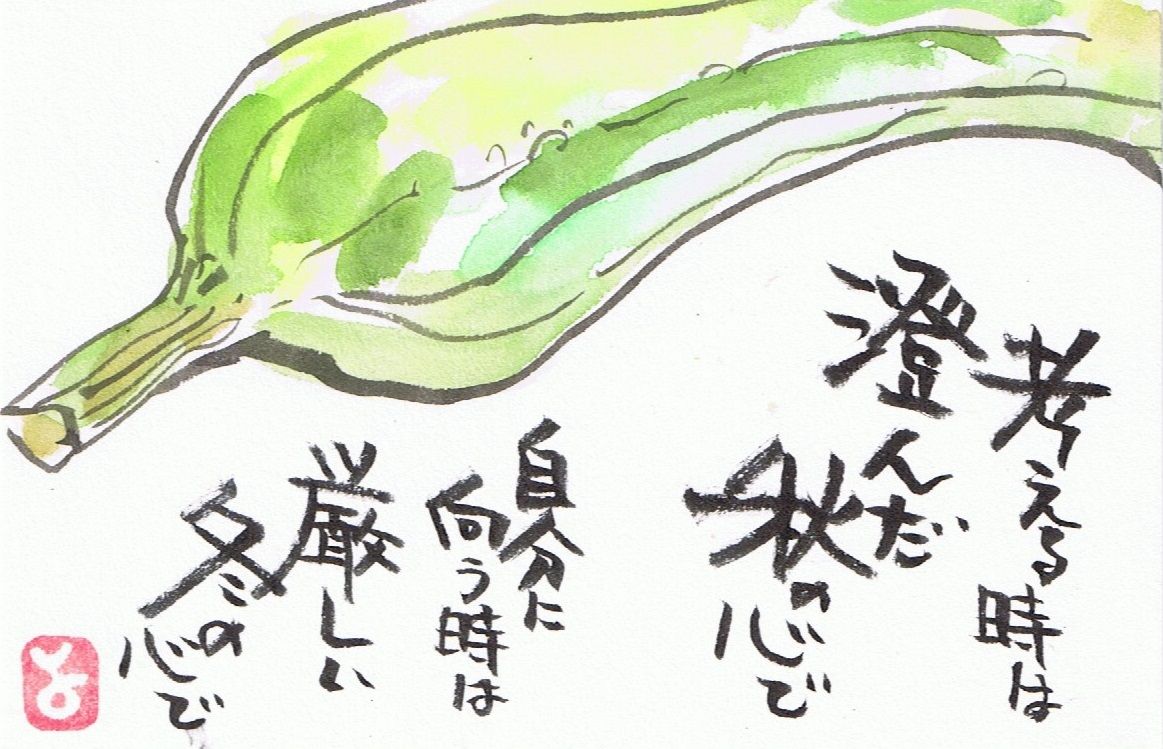 考える時は
澄んだ
秋の心で
自分に
向う時は
厳しい
冬の心で
よ